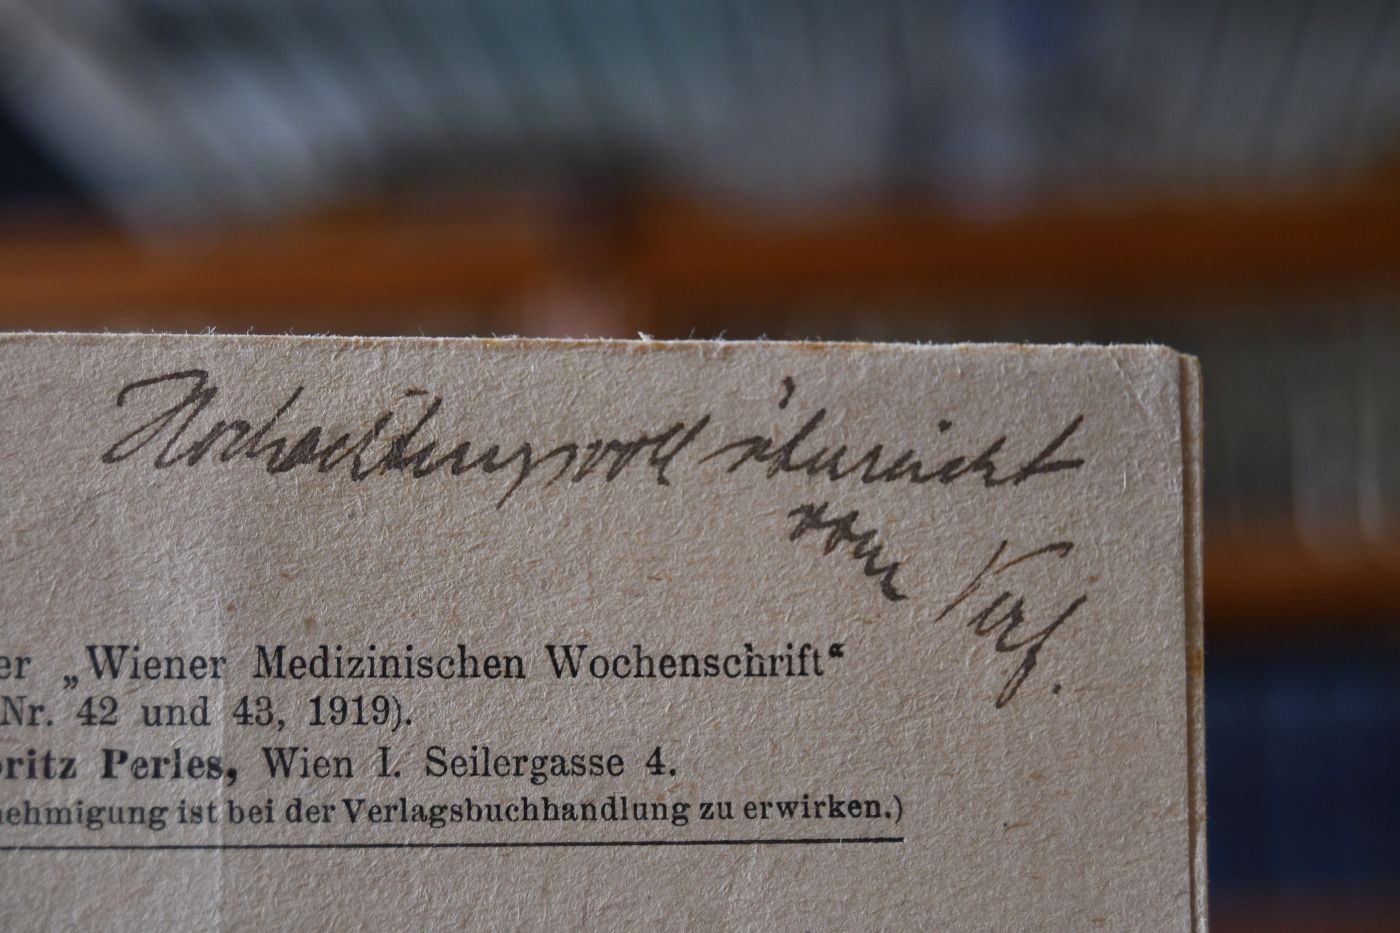 Hochachtungsvoll überreicht
vom Verf.
er „Wiener Medizinischen Wochenschrift“
Nr. 42 und 43, 1919).
oritz Perles, Wien I. Seilergasse 4.
nehmigung ist bei der Verlagsbuchhandlung zu erwirken.)